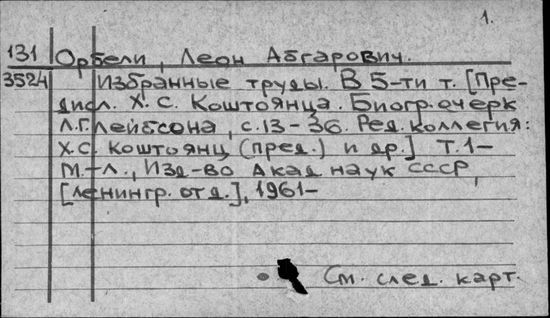 1.
131 Орбели, Леон Абгарович.
3524 Избранные труды. В 5-ти т. [Пре-
дисл. Х. С. Коштоянца. Биогр. очерк
Л.Г. Лейбсона, с. 13-36. Ред. коллегия:
Х.С. Коштоянц (пред.) и др.] Т. 1-
М.-Л., Изд-во Акад. наук СССР,
[Ленингр. отд.], 1961-
См. след. карт.